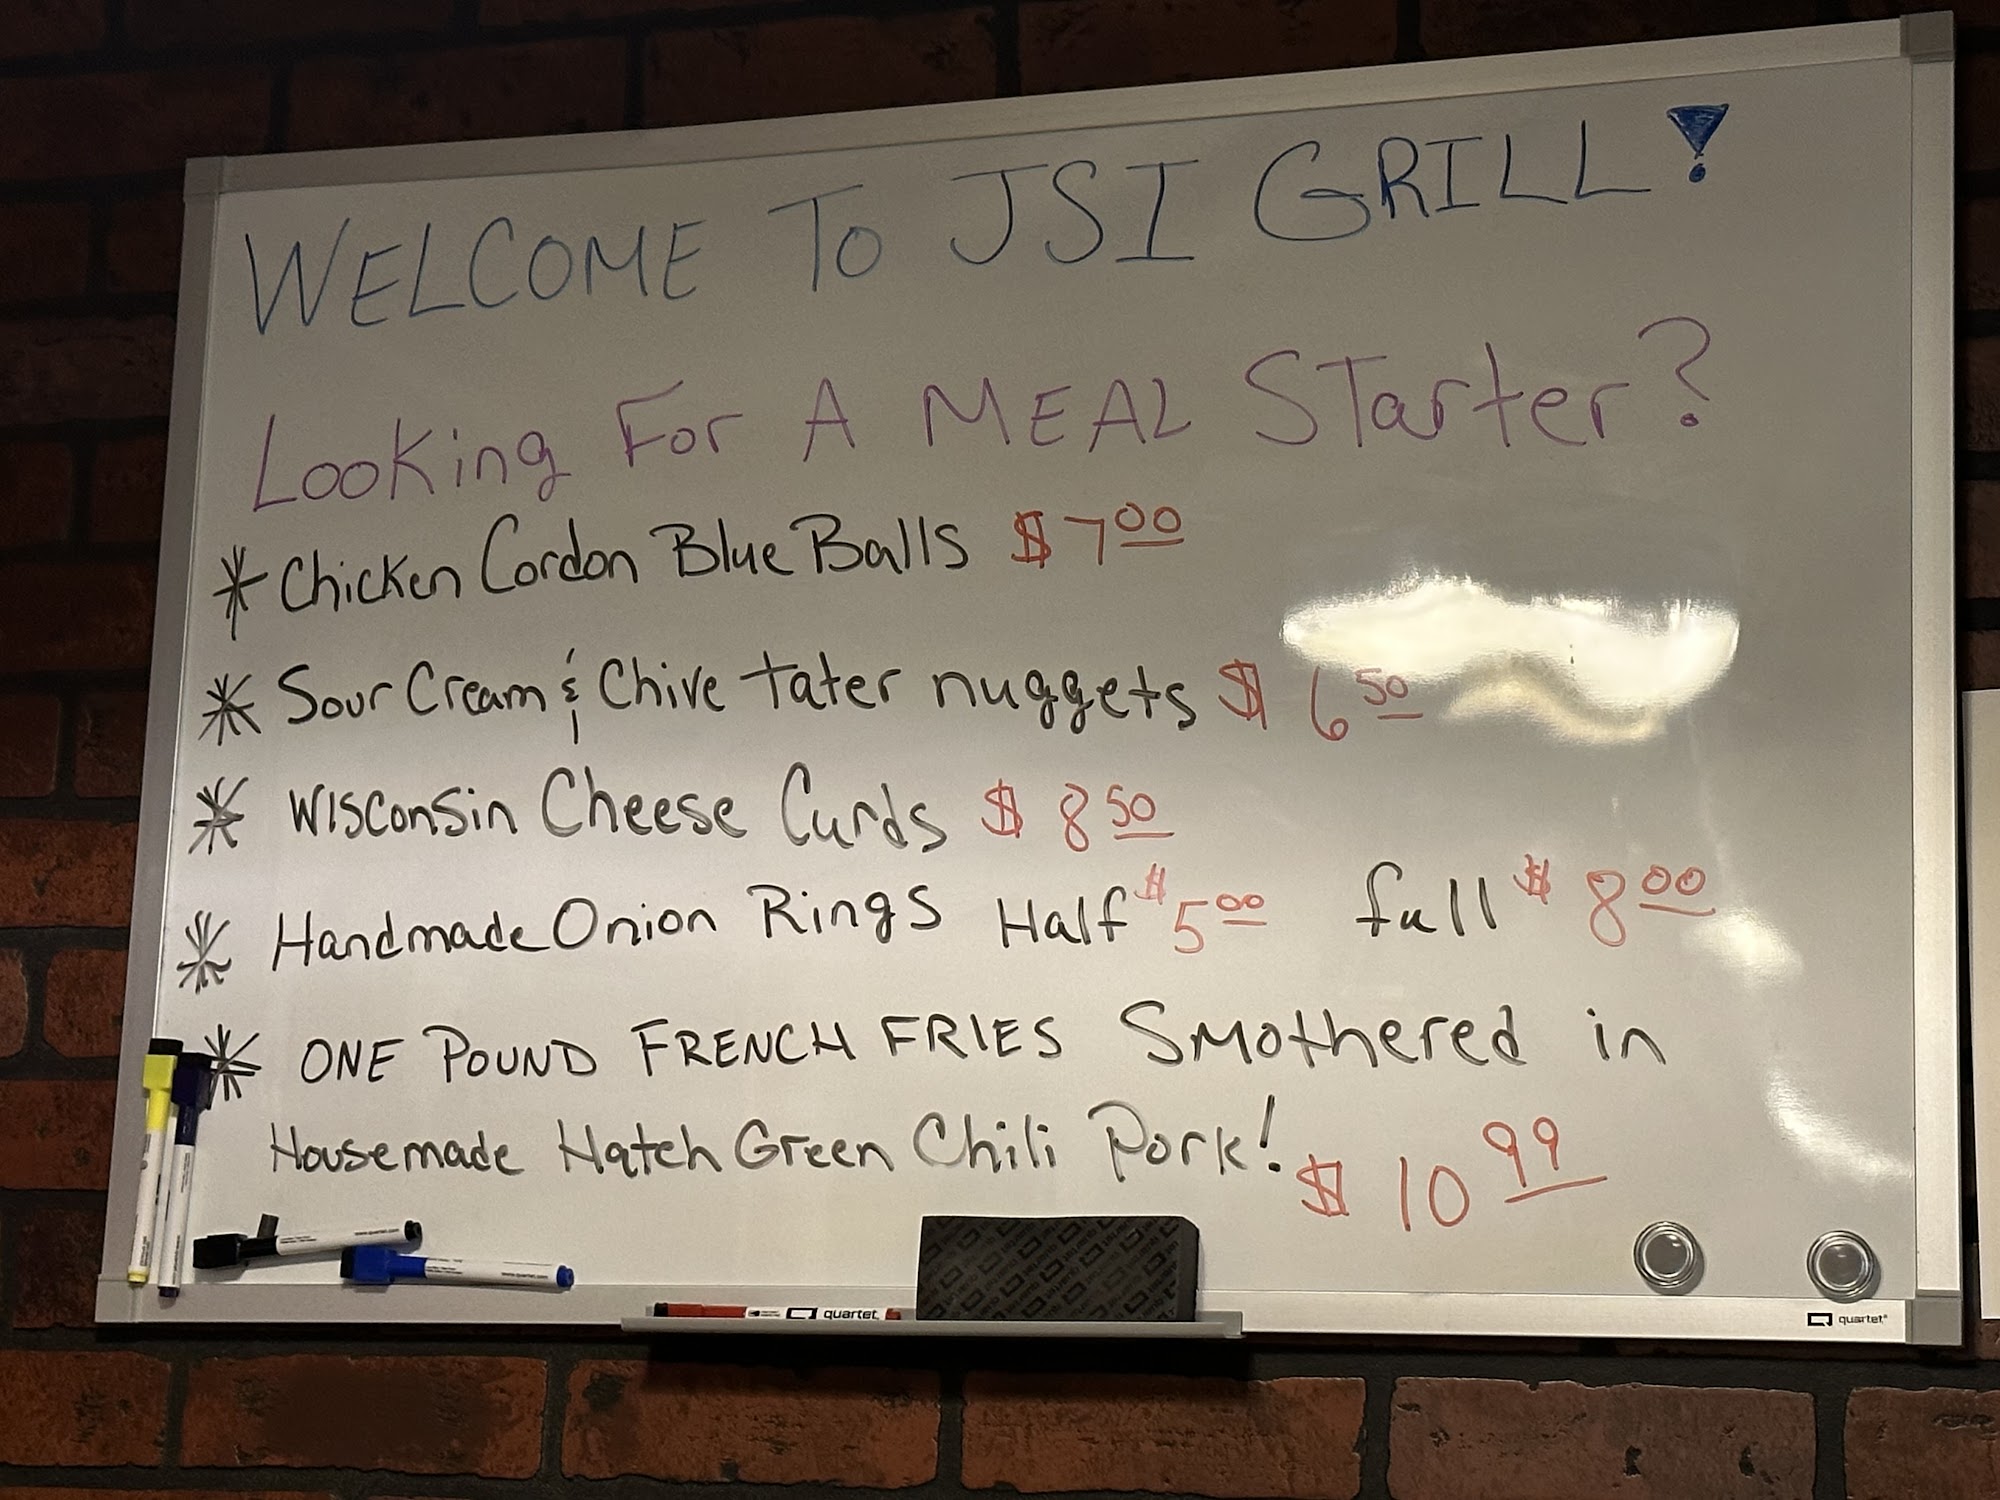 WELCOME TO JSI GRILL!
Looking For A MEAL Starter?
* Chicken Cordon Blue Balls $7.00
* Sour Cream & Chive tater nuggets $6.50
* Wisconsin Cheese Curds $8.50
* Handmade Onion Rings Half $5.00 full $8.00
* ONE POUND FRENCH FRIES Smothered in
Housemade Hatch Green Chili Pork! $10.99
www.quartet.com
www.quartet.com
quartet
quartet